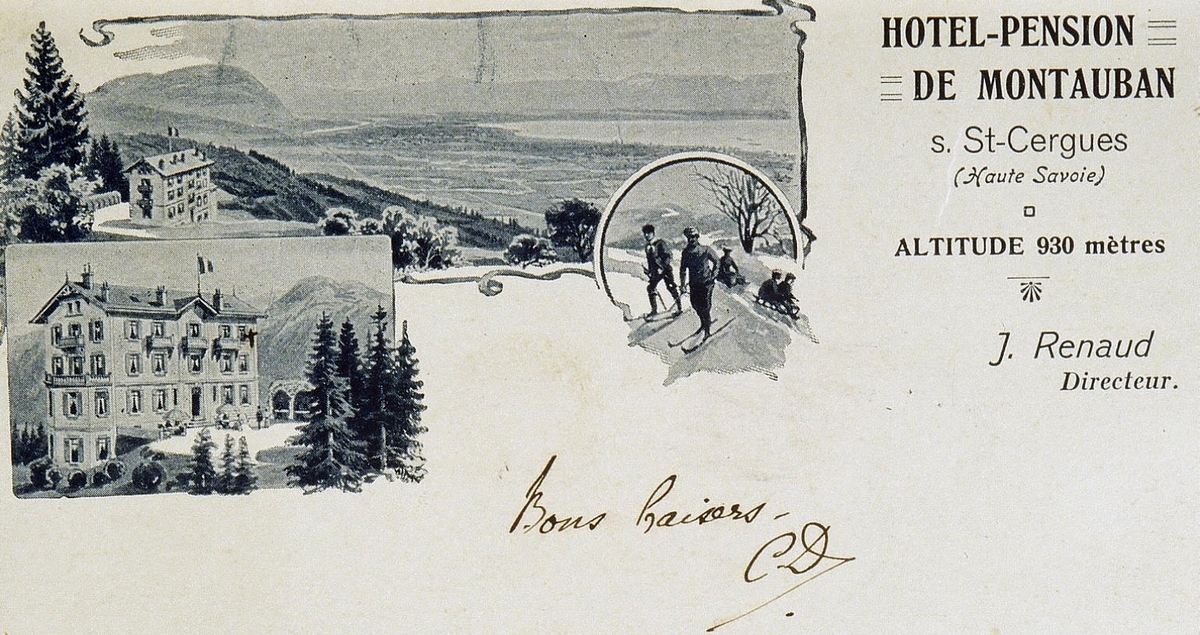 HOTEL-PENSION
DE MONTAUBAN
s. St-Cergues
(Haute Savoie)
ALTITUDE 930 mètres
J. Renaud
Directeur.
Bons baisers -
CD